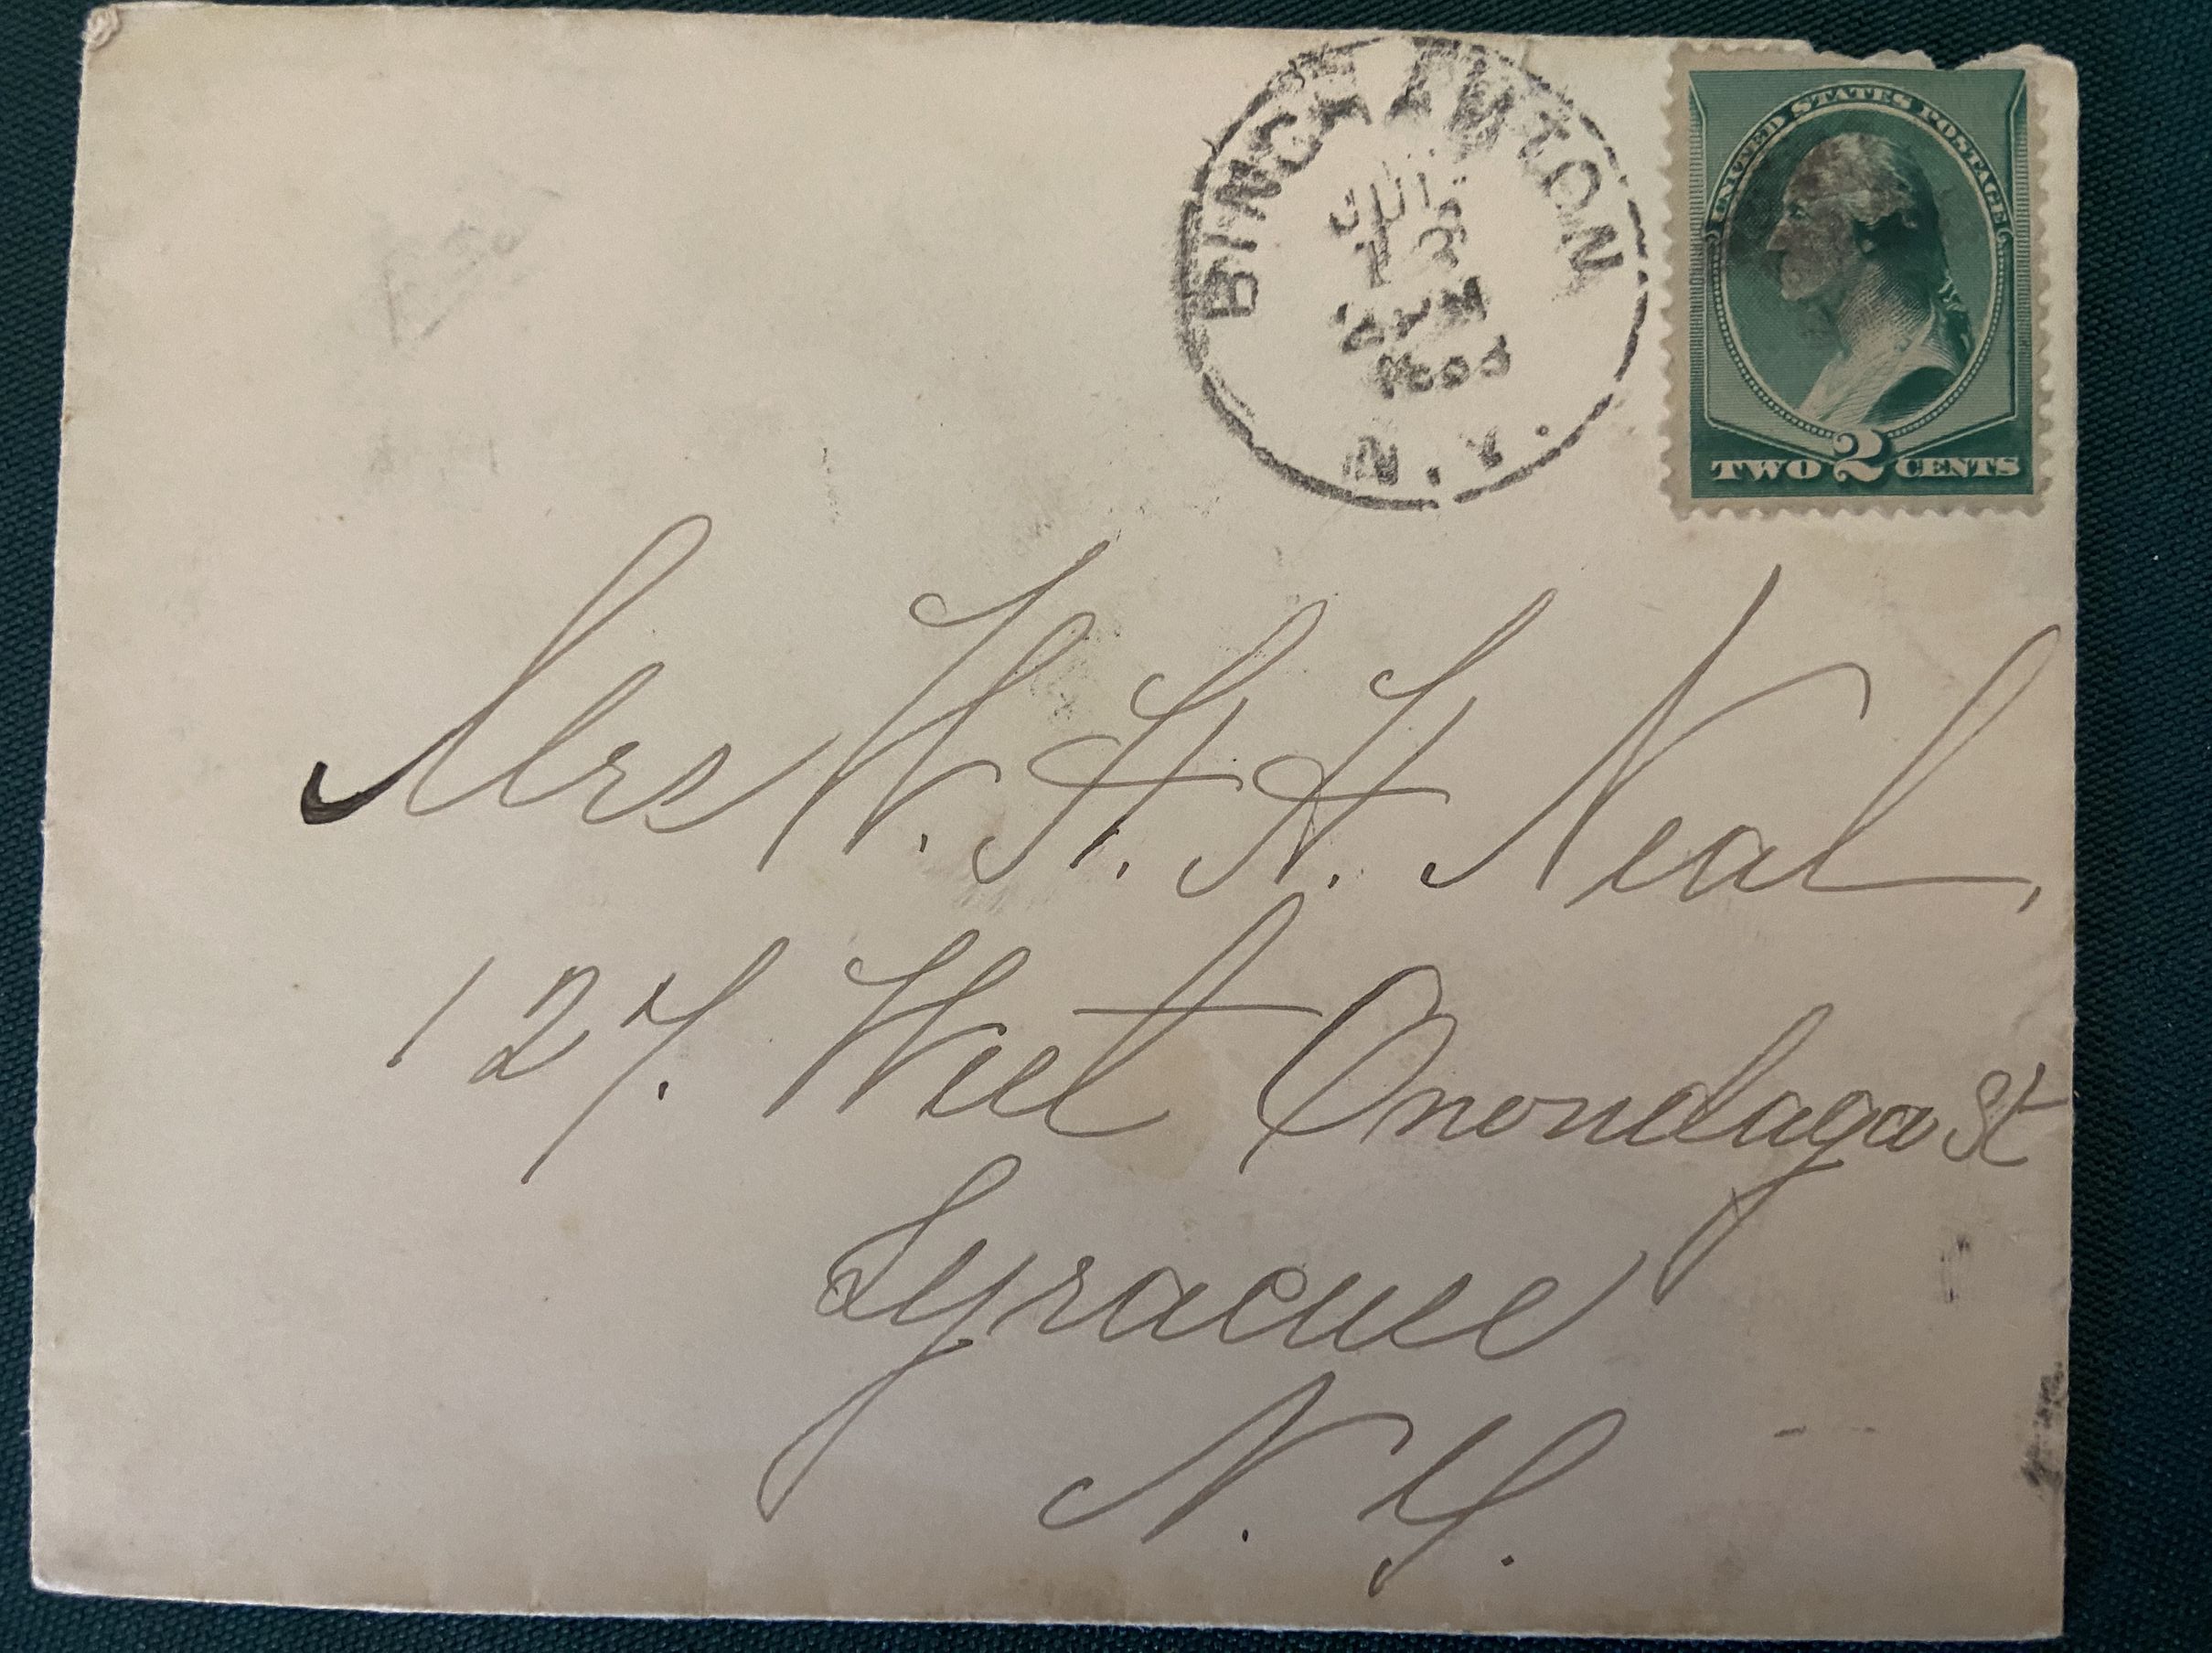 BINGHAMTON
JUL
PM
N.Y.
UNITED STATES POSTAGE
TWO 2 CENTS
Mrs W. H. H. Neal,
127. West Onondaga St
Syracuse
N. Y.